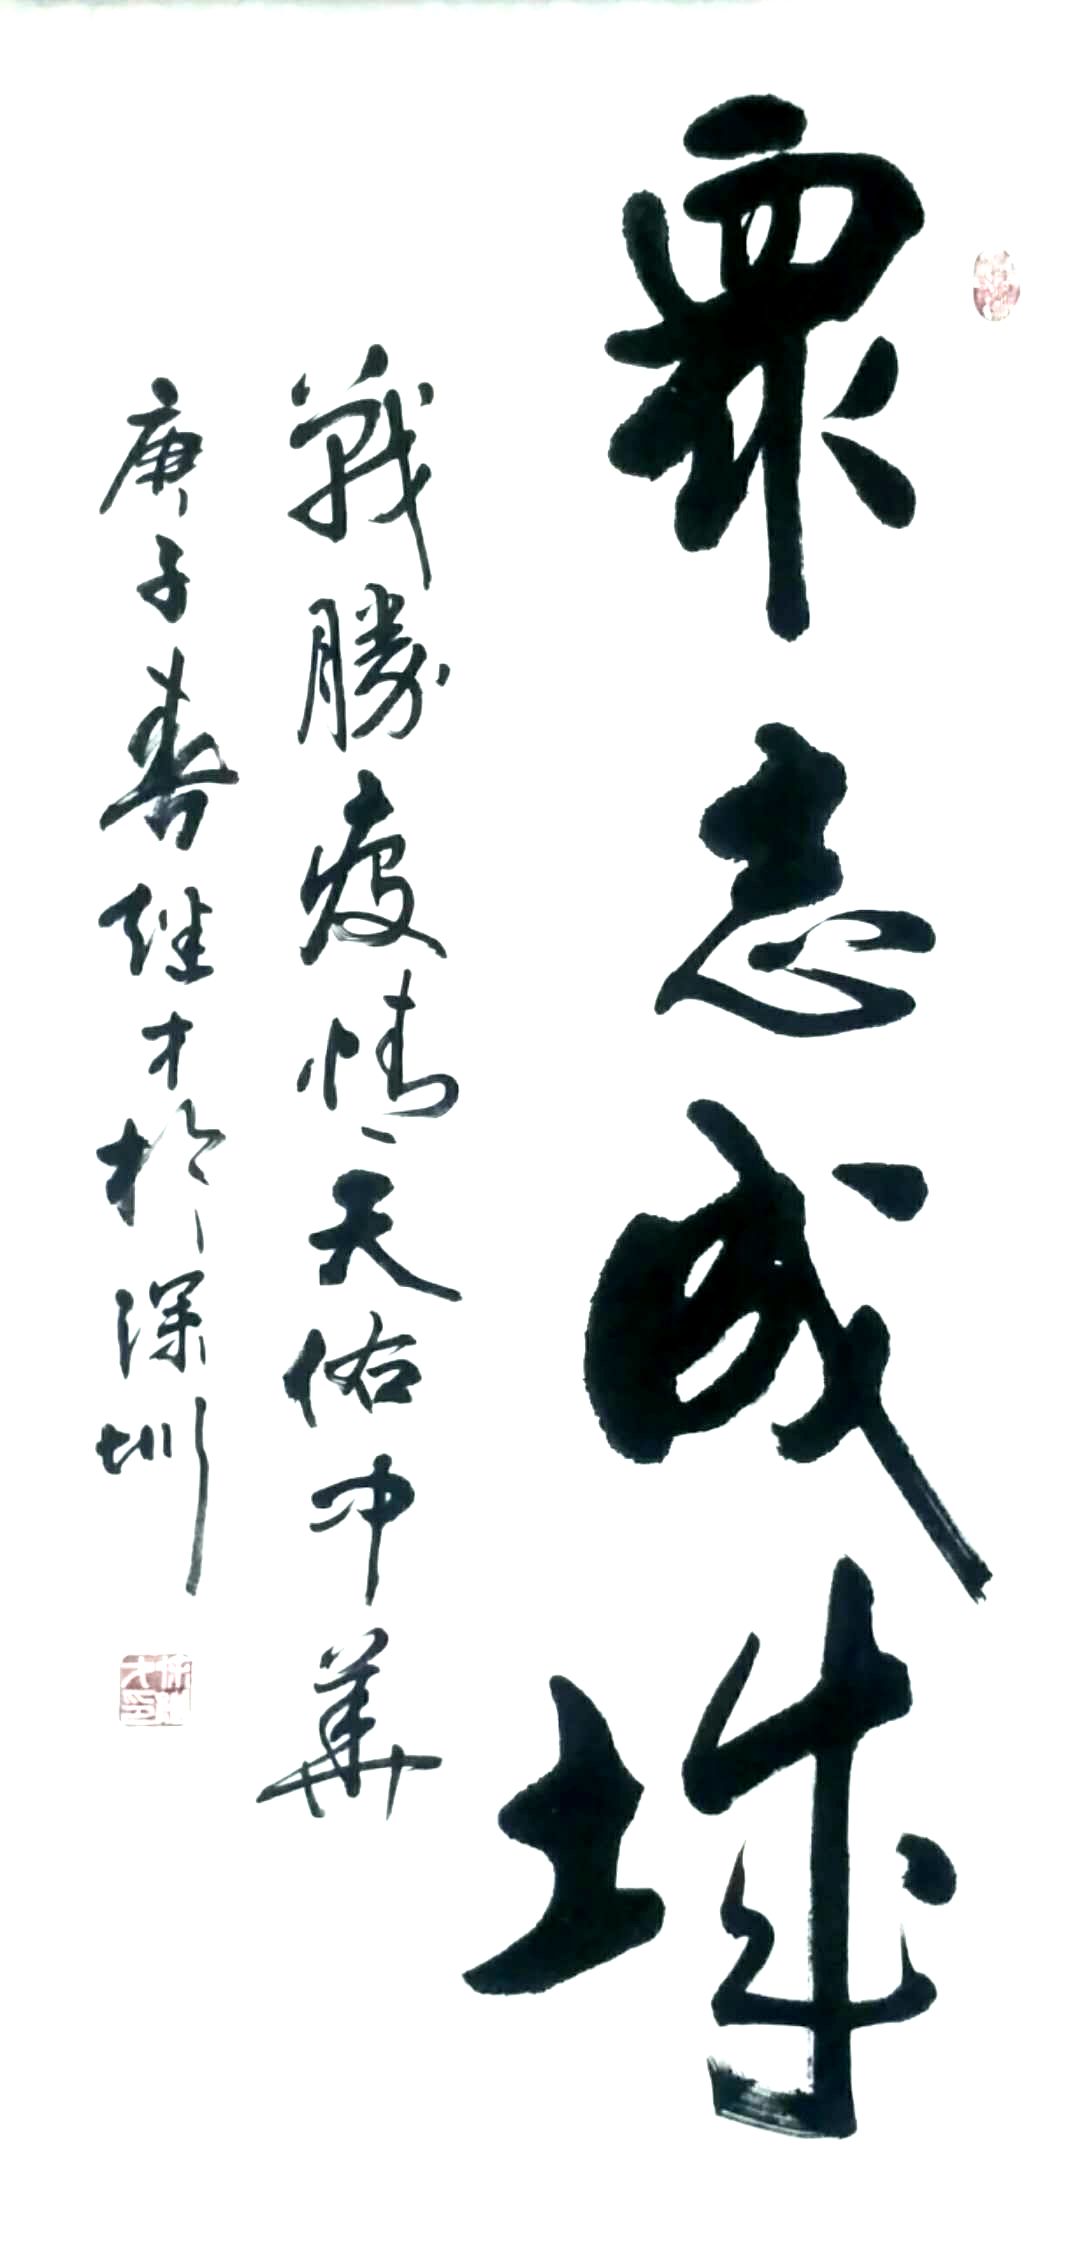 眾志成城
戰勝疫情天佑中華
庚子春继才於深圳